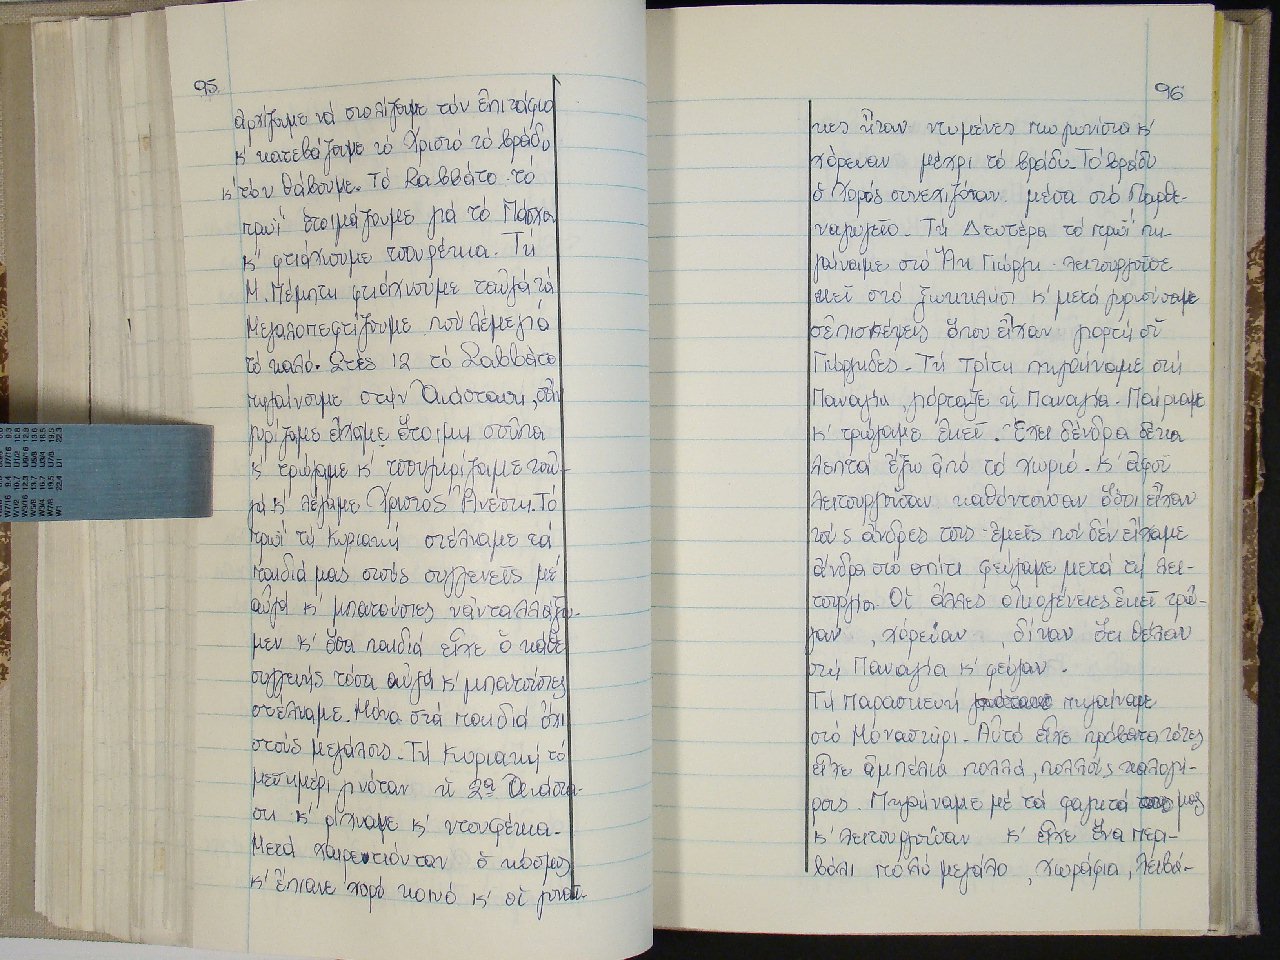 95
ἀρχίζαμε νά στολίζουμε τόν ἐπιτάφιο
κ' κατεβάζαμε τό Χριστό τό βράδυ
κ' τόν θάβουμε. Τό Σαββάτο τό
πρωΐ ἑτοιμάζουμε γιά τό Πάσχα
κ' φτιάχνουμε τσουρέκια. Τή
Μ. Πέμπτη φτιάχνουμε τ' αὐγά τά
Μεγαλοπεφτίζουμε πού λέμε γιά
τό καλό. Στές 12 τό Σαββάτο
πηγαίνουμε στήν Ἀνάσταση,
γυρίζαμε εἴχαμε ἕτοιμη σούπα
κ' τρώγαμε κ' τσουγκρίζαμε τ' αὐ-
γά κ' λέγαμε Χριστός Ἀνέστη. Τό
πρωΐ τή Κυριακή στέλναμε τά
παιδιά μας στούς συγγενεῖς μέ
αὐγά κ' μπατούστες νά ἀνταλλάξου-
μεν κ' ὅσα παιδιά εἶχε ὁ κάθε
συγγενής τόσα αὐγά κ' μπατούστες
στέλναμε. Μόνο στά παιδιά ὄχι
στούς μεγάλους. Τή Κυριακή τό
μεσημέρι γινόταν ἡ 2α Ἀνάστα-
ση κ' ρίχναμε κ' ντουφέκια.
Μετά χαιρετιόνταν ὁ κόσμος
κ' ἔπιανε χορό κοινό κ' οἱ γυναῖ-
96
κες ἦταν ντυμένες πιο γυνίστα κ'
χόρευαν μέχρι τό βράδυ. Τό βράδυ
ὁ Χορός συνεχιζόταν μέσα στό Παρθε-
ναγωγεῖο. Τή Δευτέρα τό πρωΐ πη-
γαίναμε στό Ἅη Γιώργη. Λειτουργοῦσε
ἐκεῖ στό ξωκκλήσι κ' μετά γυρνούσαμε
σ' ἐπισκέψεις ὅπου εἶχαν γιορτή οἱ
Γιώργηδες. Τή Τρίτη πηγαίναμε στή
Παναγία, γιόρταζε ἡ Παναγία. Παίρναμε
κ' τρώγαμε ἐκεῖ. Ἔχει δένδρα δέκα
λεπτά ἔξω ἀπό τό χωριό. κ' ἀφοῦ
λειτουργοῦταν καθόντουσαν ὅσοι εἶχαν
τούς ἄνδρες τους. Ἐμεῖς πού δέν εἴχαμε
ἄνδρα στό σπίτι φεύγαμε μετά τή λει-
τουργία. Οἱ ἄλλες οἰκογένειες ἐκεῖ τρώ-
γαν, χόρεύαν, δίναν ὅτι θέλαν
στή Παναγία κ' φεύγαν.
Τή Παρασκευή πηγαίναμε
στό Μοναστήρι. Αὐτό εἶχε πρόβατα τότες
εἶχε ἀμπέλια πολλά, πολλούς καλογή-
ρους. Πηγαίναμε μέ τά φαγητά μας
κ' λειτουργοῦσαν κ' εἶχε ἕνα περι-
βόλι πολύ μεγάλο, χωράφια, λειβά-